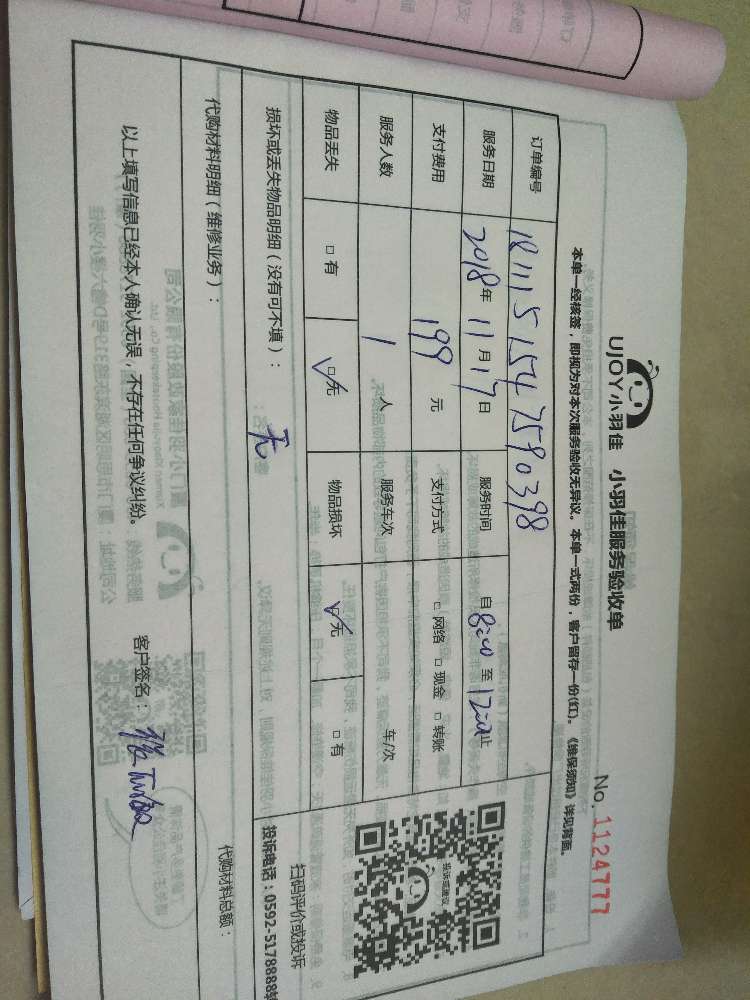 UJOY小羽佳 小羽佳服务验收单
No. 1124777
本单一经核签，即视为对本次服务验收无异议。本单一式两份，客户留存一份(红)。《维保须知》详见背面。
订单编号 1811151547580398
服务日期 2018年11月17日 服务时间 自8:00至12:00止
支付费用 199元 支付方式 □网络 □现金 □转账
服务人数 1人 服务车次 车/次
物品丢失 □有 ☑无 物品损坏 ☑无 □有
损坏或丢失物品明细（没有可不填）： 无
代购材料明细（维修业务）：
代购材料总额：
以上填写信息已经本人确认无误，不存在任何争议纠纷。 客户签名：
投诉或建议
扫码评价或投诉
投诉电话：0592-5178888转